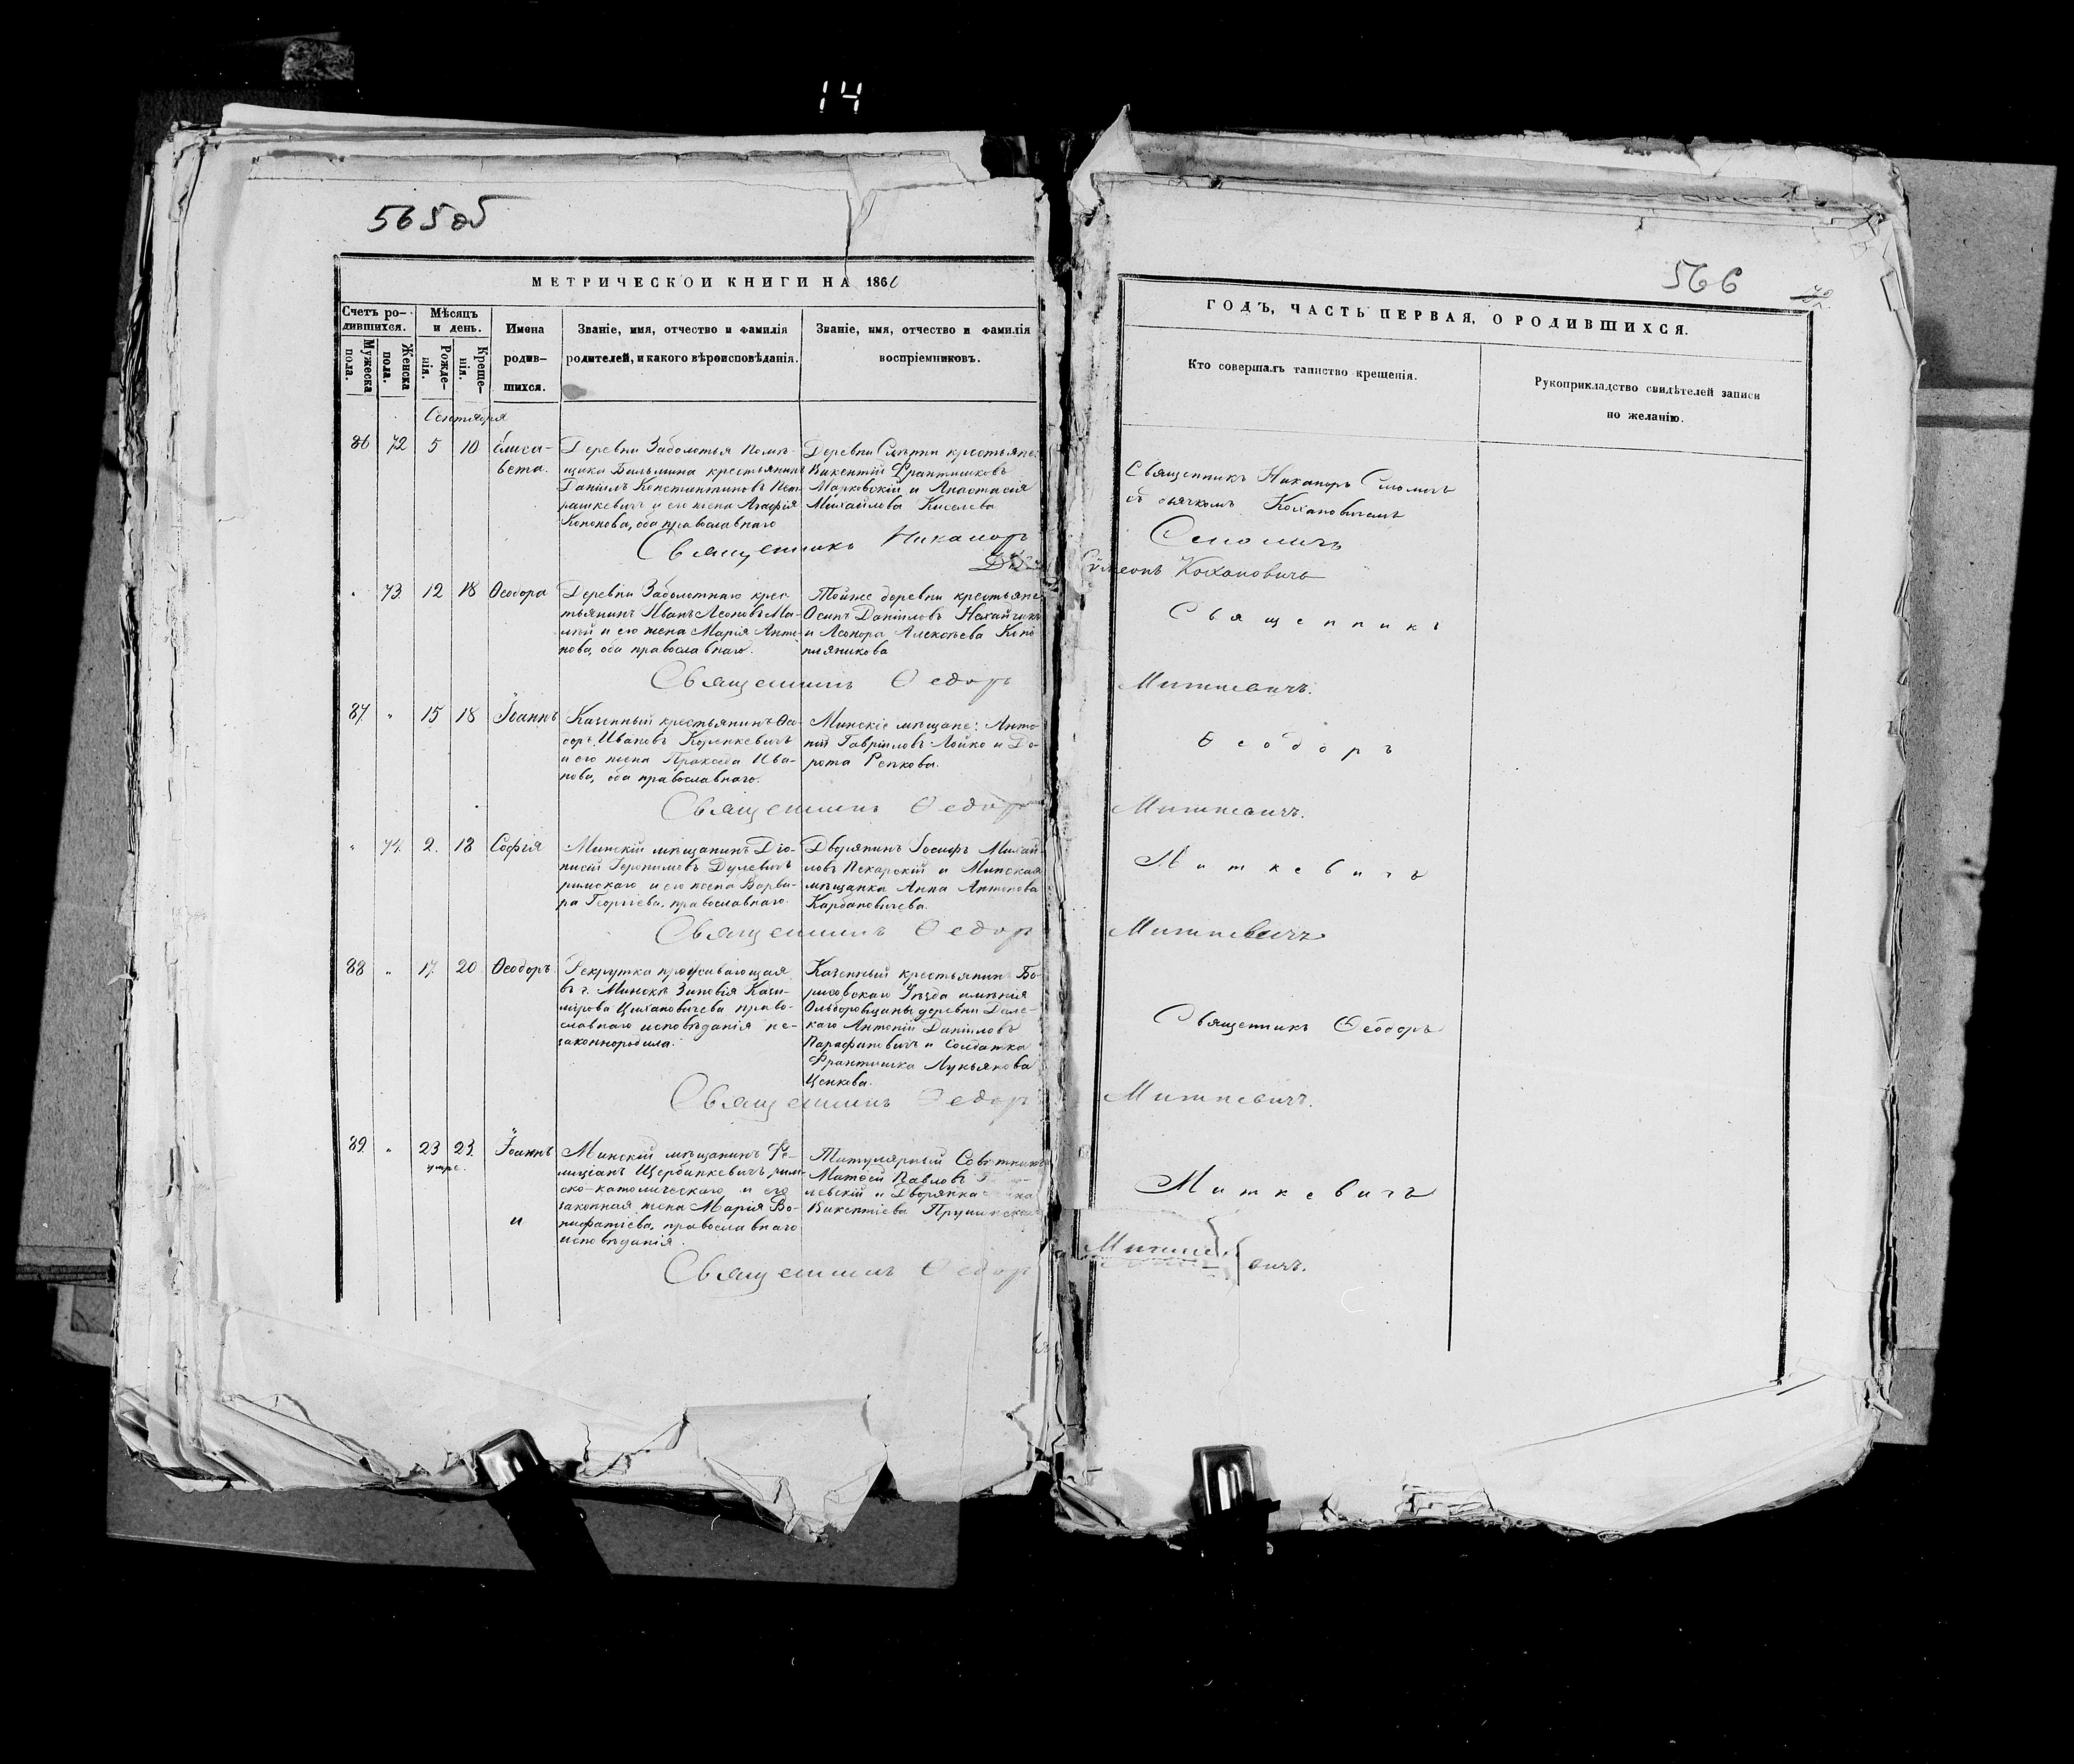 14
565 об
МЕТРИЧЕСКОЙ КНИГИ НА 1866
Счетъ ро-
дившихся.
Мужеска
пола.
Женска
пола.
Мѣсяцъ
и день.
Рожде-
нія.
Креще-
нія.
Имена
родив-
шихся.
Званіе, имя, отчество и фамилія
родителей, и какого вѣроисповѣданія.
Званіе, имя, отчество и фамилія
воспріемниковъ.
Сентября
86 72 5 10 Елиса-
вета.
Деревни Заболотья помѣ-
щика крестьянинъ
Даніилъ Константиновъ Пет-
рашкевичъ и его жена Агафія
Кононова, оба православнаго
Деревни крестьяне
Викентій Францишковъ
Марковскій и Анастасія
Михайлова Киселева
Священникъ Никаноръ
73 12 18 Ѳеодора
Деревни крес
тьянинъ Иванъ Леоновъ Ма-
лей и его жена Марія Анто
нова, оба православнаго.
Тойже деревни крестьяне
Осипъ Даніиловъ
и Алексѣева
Священникъ Ѳедоръ
87. " 15 18 Іоаннъ
Казенный крестьянинъ Ѳео-
доръ Ивановъ Коренкевичъ
и его жена Праксéда Ива-
нова, оба православнаго.
Минскіе мѣщане: Анто
ній Гавріиловъ Лойко и До-
рота Репкова.
Священникъ Ѳедоръ
" 74. 2. 18 Софія
Минскій мѣщанинъ Діо-
нисій Іеронимовъ Дулевичъ
римскаго и его жена Варва-
ра Георгіева, православнаго.
Дворянинъ Іосифъ Михай-
ловъ Пекарскій и Минская
мѣщанка Анна Антонова
Карбановичева.
Священникъ Ѳедоръ
88 " 17. 20 Ѳеодоръ
Рекрутка проживающая
въ г. Минскѣ Зиновія Кази-
мірова Цихановичева право-
славнаго исповѣданія не-
законнородила.
Казенный крестьянинъ Бо-
рисовскаго Уѣзда имѣнія
деревни
Антоній Даніиловъ
и Солдатка
Францишка Лукьянова
Ценкова.
Священникъ Ѳедоръ
89. " 23 23. Іоаннъ
Минскій мѣщанинъ Фе-
лиціанъ Щербинкевичъ рим-
ско-католическаго и его
законная жена Марія Во-
нифатіева, православнаго
исповѣданія.
Титулярный Совѣтникъ
Матѳей Павловъ
левскій и Дворянка
Викентіева
и
Священникъ Ѳедоръ
566
ГОДЪ, ЧАСТЬ ПЕРВАЯ, О РОДИВШИХСЯ.
Кто совершалъ таинство крещенія.
Рукоприкладство свидѣтелей записи
по желанію.
Священникъ Никаноръ Смоличъ
съ дьячкомъ Кохановичемъ
Смоличъ
Симеонъ Кохановичъ
Священникъ
Миткевичъ.
Ѳеодоръ
Миткевичъ.
Миткевичъ
Миткевичъ
Священникъ Ѳеодоръ
Миткевичъ.
Миткевичъ
Миткевичъ.